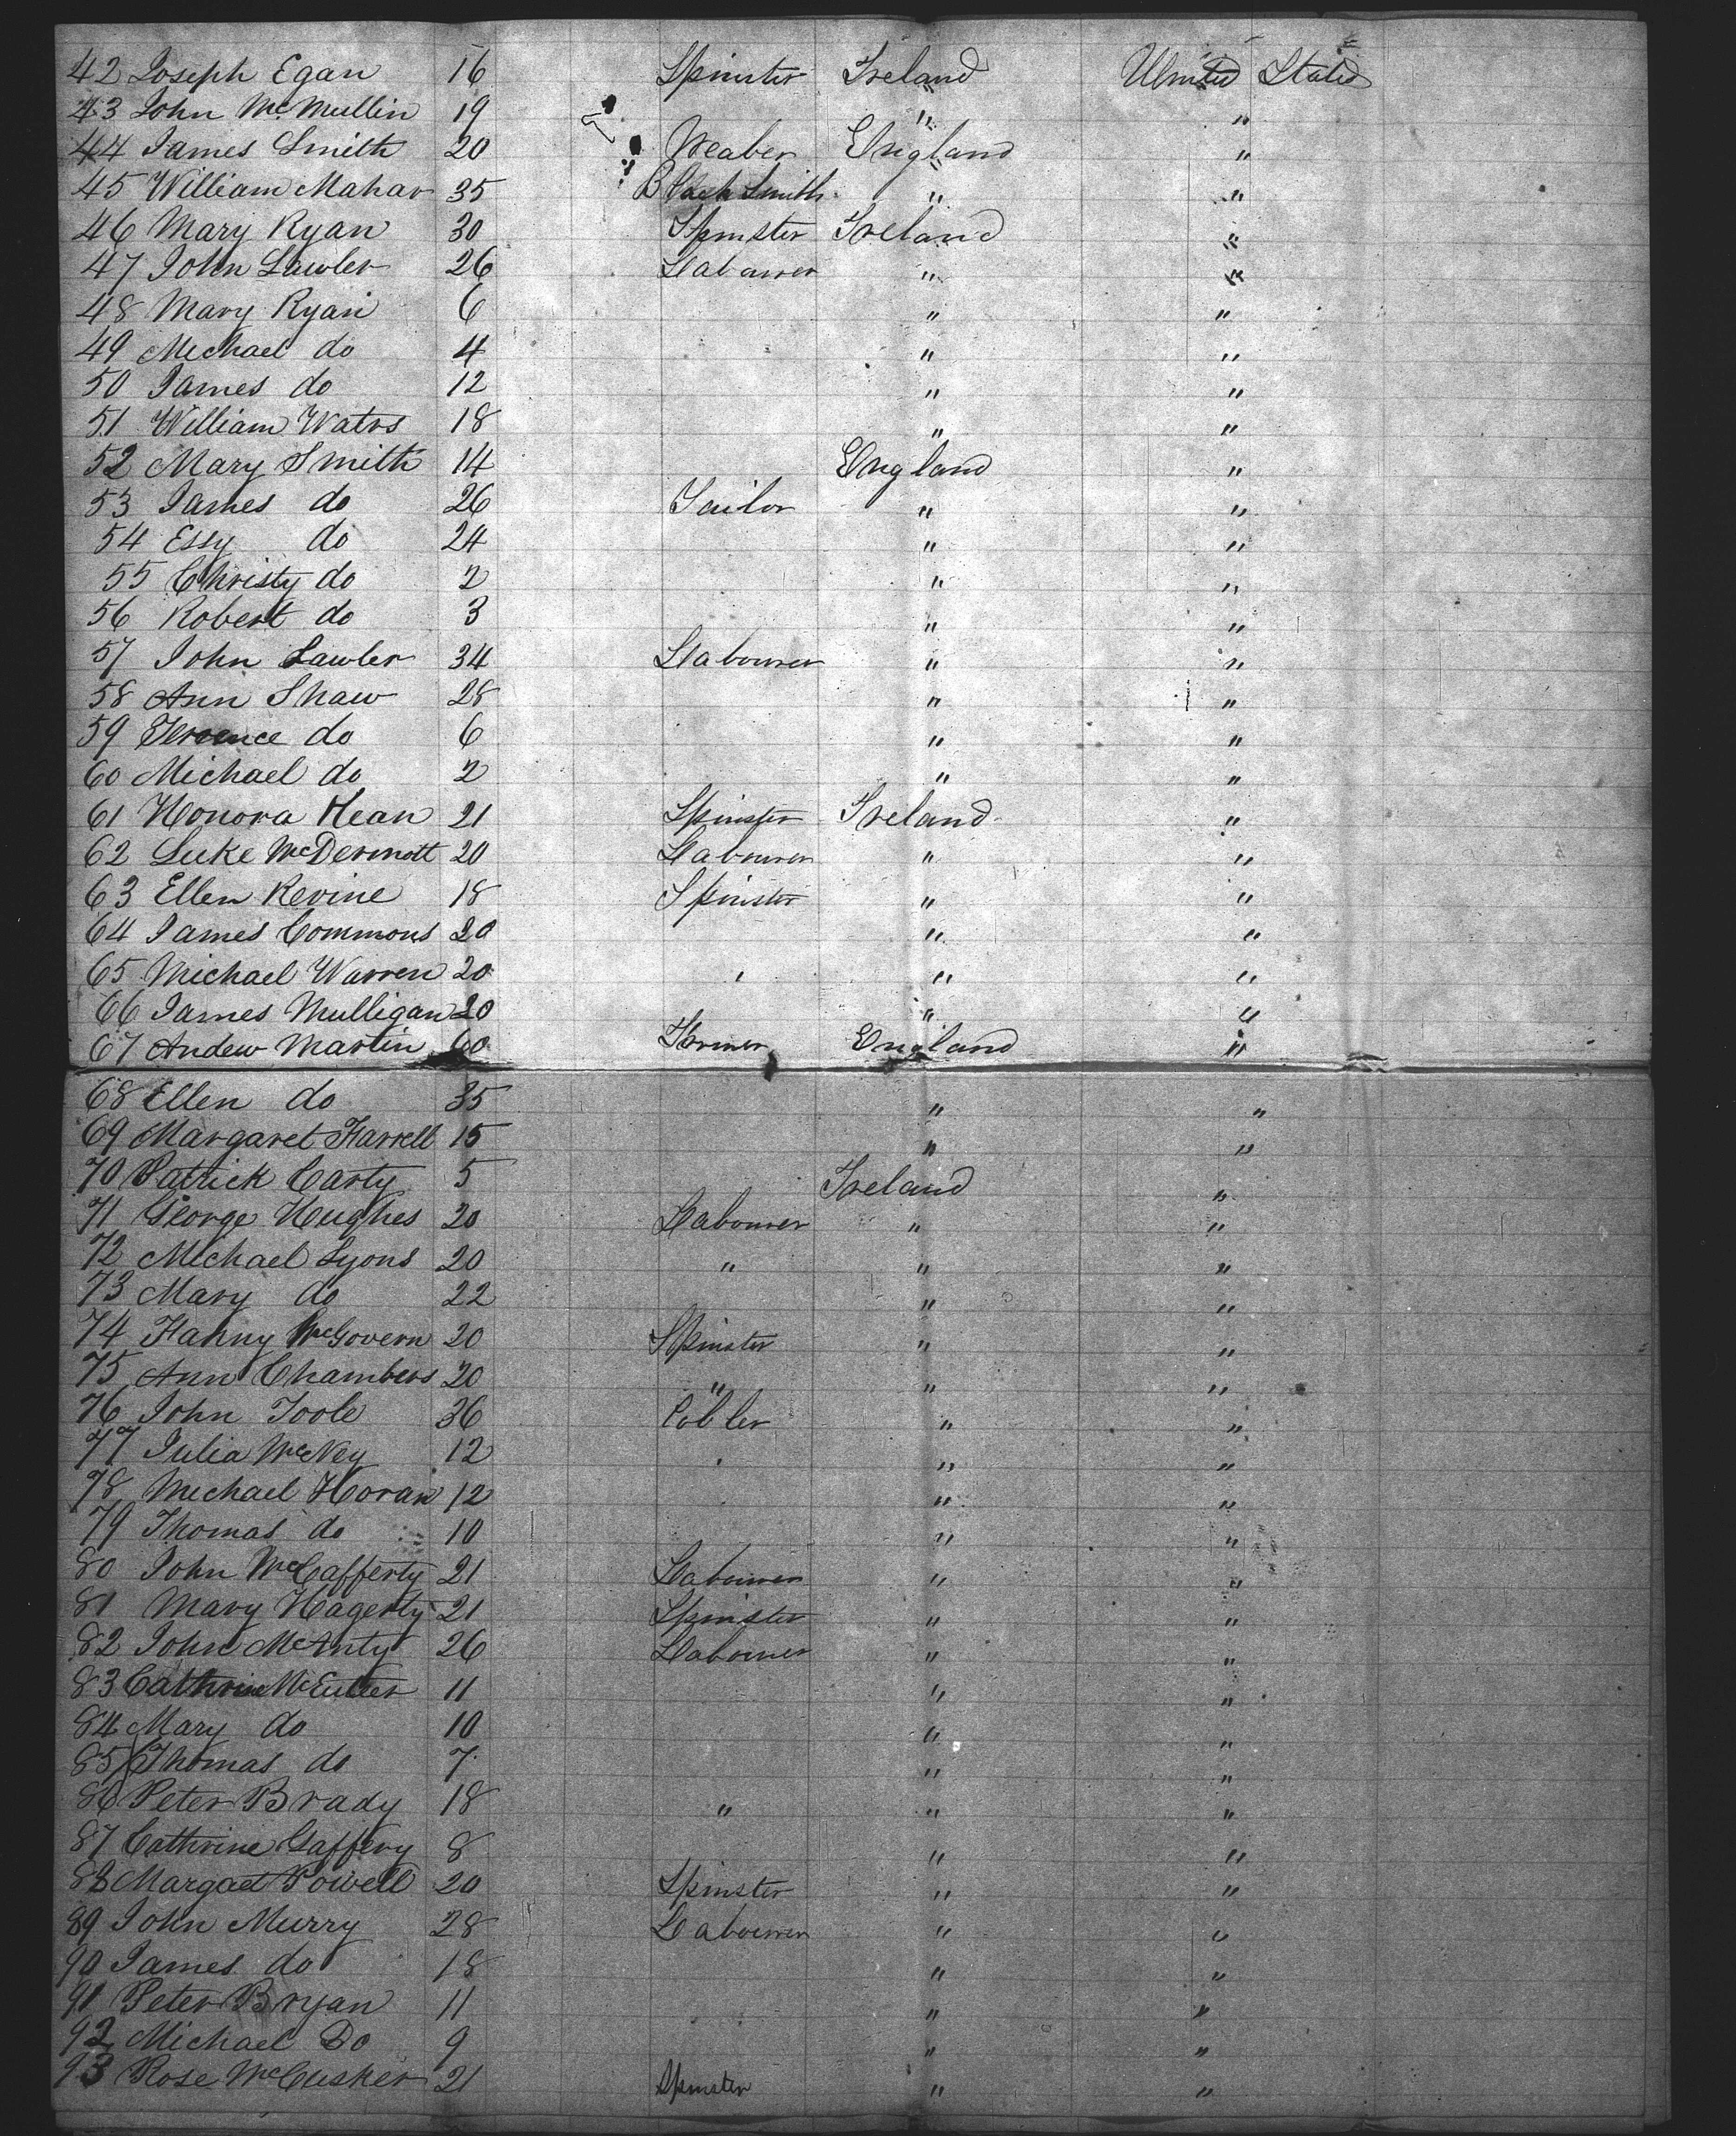 42 Joseph Egan 16 Spinster Ireland United States
43 John McMullin 19 " "
44 James Smith 20 Weaber England "
45 William Mahar 35 BlackSmith " "
46 Mary Ryan 30 Spinster Ireland "
47 John Lawler 26 Labourer " "
48 Mary Ryan 6 " "
49 Michael do 4 " "
50 James do 12 " "
51 William Watrs 18 " "
52 Mary Smith 14 England "
53 James do 26 Tailor " "
54 Essy do 24 " "
55 Christy do 2 " "
56 Robert do 3 " "
57 John Lawler 34 Labourer " "
58 Ann Shaw 28 " "
59 Terrence do 6 " "
60 Michael do 2 " "
61 Honora Kean 21 Spinster Ireland "
62 Luke McDermott 20 Labourer " "
63 Ellen Kevine 18 Spinster " "
64 James Commons 20 " "
65 Michael Warren 20 " "
66 James Mulligan 20 " "
67 Andew Martin 60 Farmer England "
68 Ellen do 35 " "
69 Margaret Farrell 15 " "
70 Patrick Carty 5 Ireland "
71 George Hughes 20 Labourer " "
72 Michael Lyons 20 " " "
73 Mary do 22 " "
74 Fanny McGovern 20 Spinster " "
75 Ann Chambers 20 " " "
76 John Toole 36 Cobler " "
77 Julia McKey 12 " "
78 Michael Horan 12 " "
79 Thomas do 10 " "
80 John McCafferty 21 Labourer " "
81 Mary Hagerty 21 Spinster " "
82 John McAnty 26 Labourer " "
83 Cathrine 11 " "
84 Mary do 10 " "
85 Thomas do 7 " "
86 Peter Brady 18 " " "
87 Cathrine Gaffery 8 " "
88 Margaet Powell 20 Spinster " "
89 John Murry 28 Labourer " "
90 James do 18 " "
91 Peter Bryan 11 " "
92 Michael Do 9 " "
93 Rose McCusker 21 Spinster " "